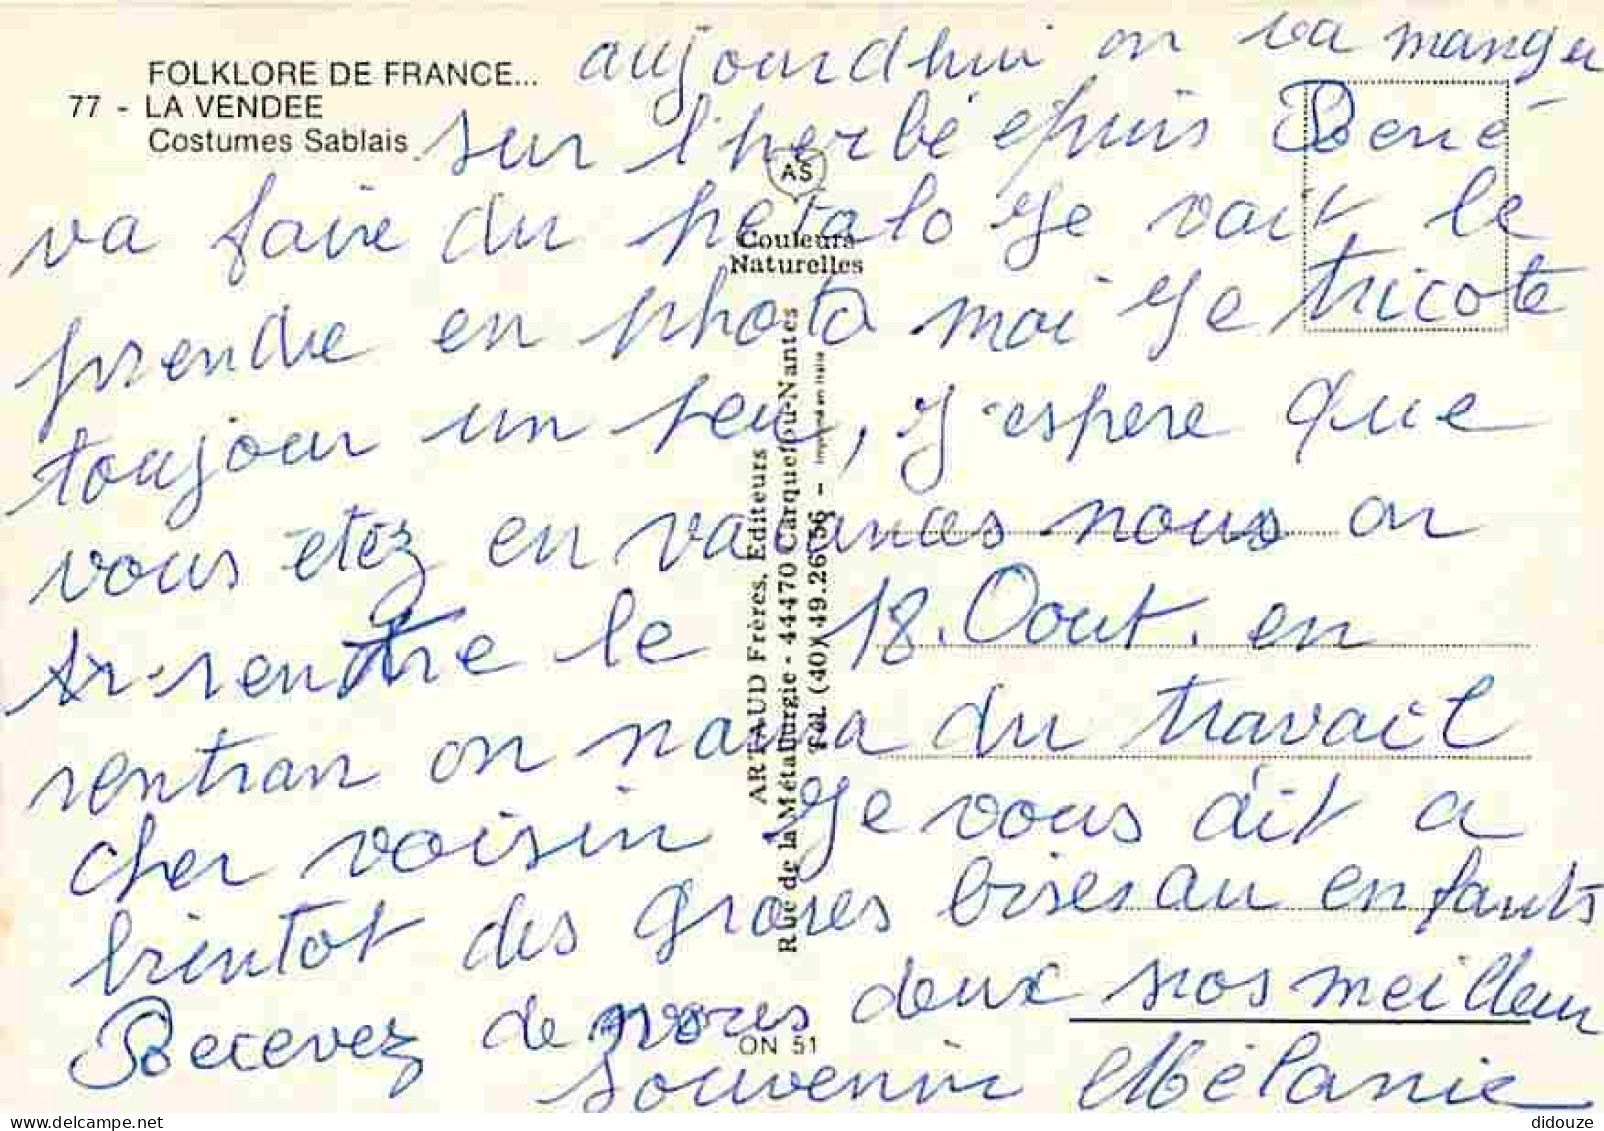 FOLKLORE DE FRANCE...
77 - LA VENDEE
Costumes Sablais
aujourdhui on va manger
sur l'herbe epuis René
va faire du petalo Je vait le
prendre en photo moi Je tricote
toujour un peu, J'espere que
vous etez en vacances nous on
rendre le 18. Oout. en
rentran on naura du travail
cher voisin Je vous dit a
bientot des groses bises au enfants
Recevez de nous deux nos meilleur
souvenir Mélanie
AS
Couleurs
Naturelles
ARTAUD Frères, Editeurs
Rue de la Métallurgie - 44470 Carquefou-Nantes
Tél. (40) 49.26.56 - Imprimé en Italie
ON 51
didouze